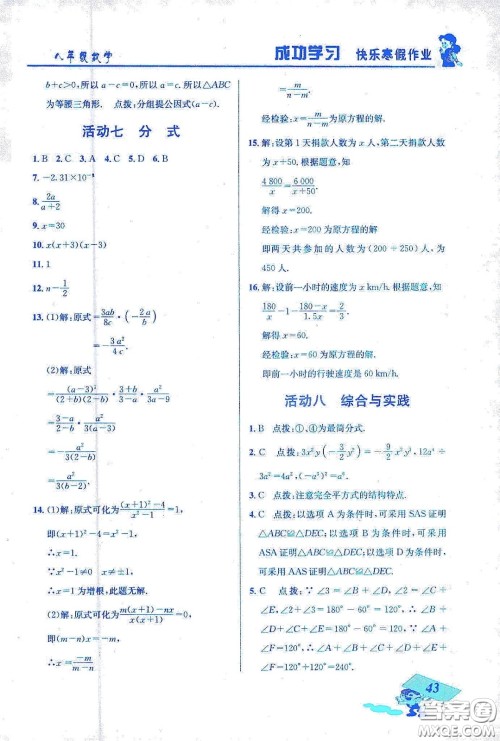 八年级数学
成功学习 快乐寒假作业
b+c>0,所以a-c=0,所以a=c.所以△ABC
为等腰三角形. 点拨:分组提公因式(a-c).
活动七 分 式
1. B 2. C 3. A 4. C 5. D 6. B
8. 2a/(a+2)
9. x=30
10. x(x+3)(x-3)
11. 1
12. n-1/2
13. (1)解:原式=3ab/8c·(-2a/b)
=-3a²/4c.
(2)解:原式
=(a-3)²/((2+b)(2-b))·(3+b)/(3-a)·(2+b)/(3a-9)
=(3-a)/(2-b)·a²/(3(a-3))
=-a²/(3(2-b))
14. (1)解:原式可化为((x+1)²-4)/(x²-1)=1,
即(x+1)²-4=x²-1,
∴x=1.
又∵x²-1≠0 x≠±1
∴x=1为增根,此题无解.
(2)解:原式可化为(m(x+1)-nx)/(x(x+1))=0.
即(m-n)x=-m,
∴x=-m/(m-n)
=-m/(n-m).
经检验:x=-m/(n-m)为原方程的解.
15. 解:设第1天捐款人数为x人,第二天捐款人数
为x+50.根据题意,知
4 800/x=6 000/(x+50).
解得x=200.
经检验:x=200为原方程的解
即两天共参加的人数为(200+250)人,为
450人.
16. 解:设前一小时的速度为x km/h.根据题意,知
180/x-1-(180-x)/1.5x=2/3.
解得x=60.
经检验:x=60为原方程的解
即前一小时的行驶速度为60 km/h.
活动八 综合与实践
1. B 点拨:①、④为最简分式.
2. C 点拨:3x²y(-3/2y²)=-9/2x²y³,12a⁴÷
3. C 点拨:注意完全平方式的结构特点.
4. C 点拨:以选项A为条件时,可采用SAS证明
△ABC≌△DEC;以选项B为条件时,可采用
ASA证明△ABC≌△DEC;以选项D为条件时,
可采用AAS证明△ABC≌△DEC.
5. C 点拨:∵∠3=∠B+∠D,∠2=∠C+
∠F,∠2+∠3=180°-60°=120°,∴∠B+∠C+
∠D+∠F=120°.又∵∠1=60°,∴∠A+
∠E=180°-60°=120°.∴∠B+∠C+∠D+∠A+
∠E+∠F=120°+120°=240°.
43
答案圈
MXQE.COM